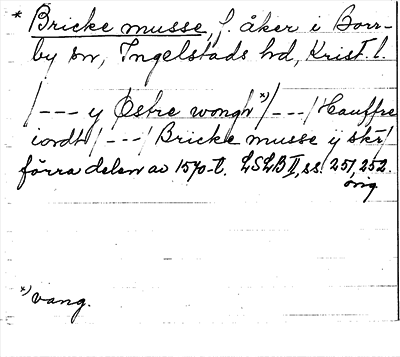 * Bricke musse, f. åker i Borr-
by sn, Ingelstads hd, Krist. l.
/--- y Östre wongh *)/---/ Hauffre
iordt/---/ Bricke musse ij skr/
förra delen av 1570-t. LSLB II, ss. 251, 252.
orig
*) vang.